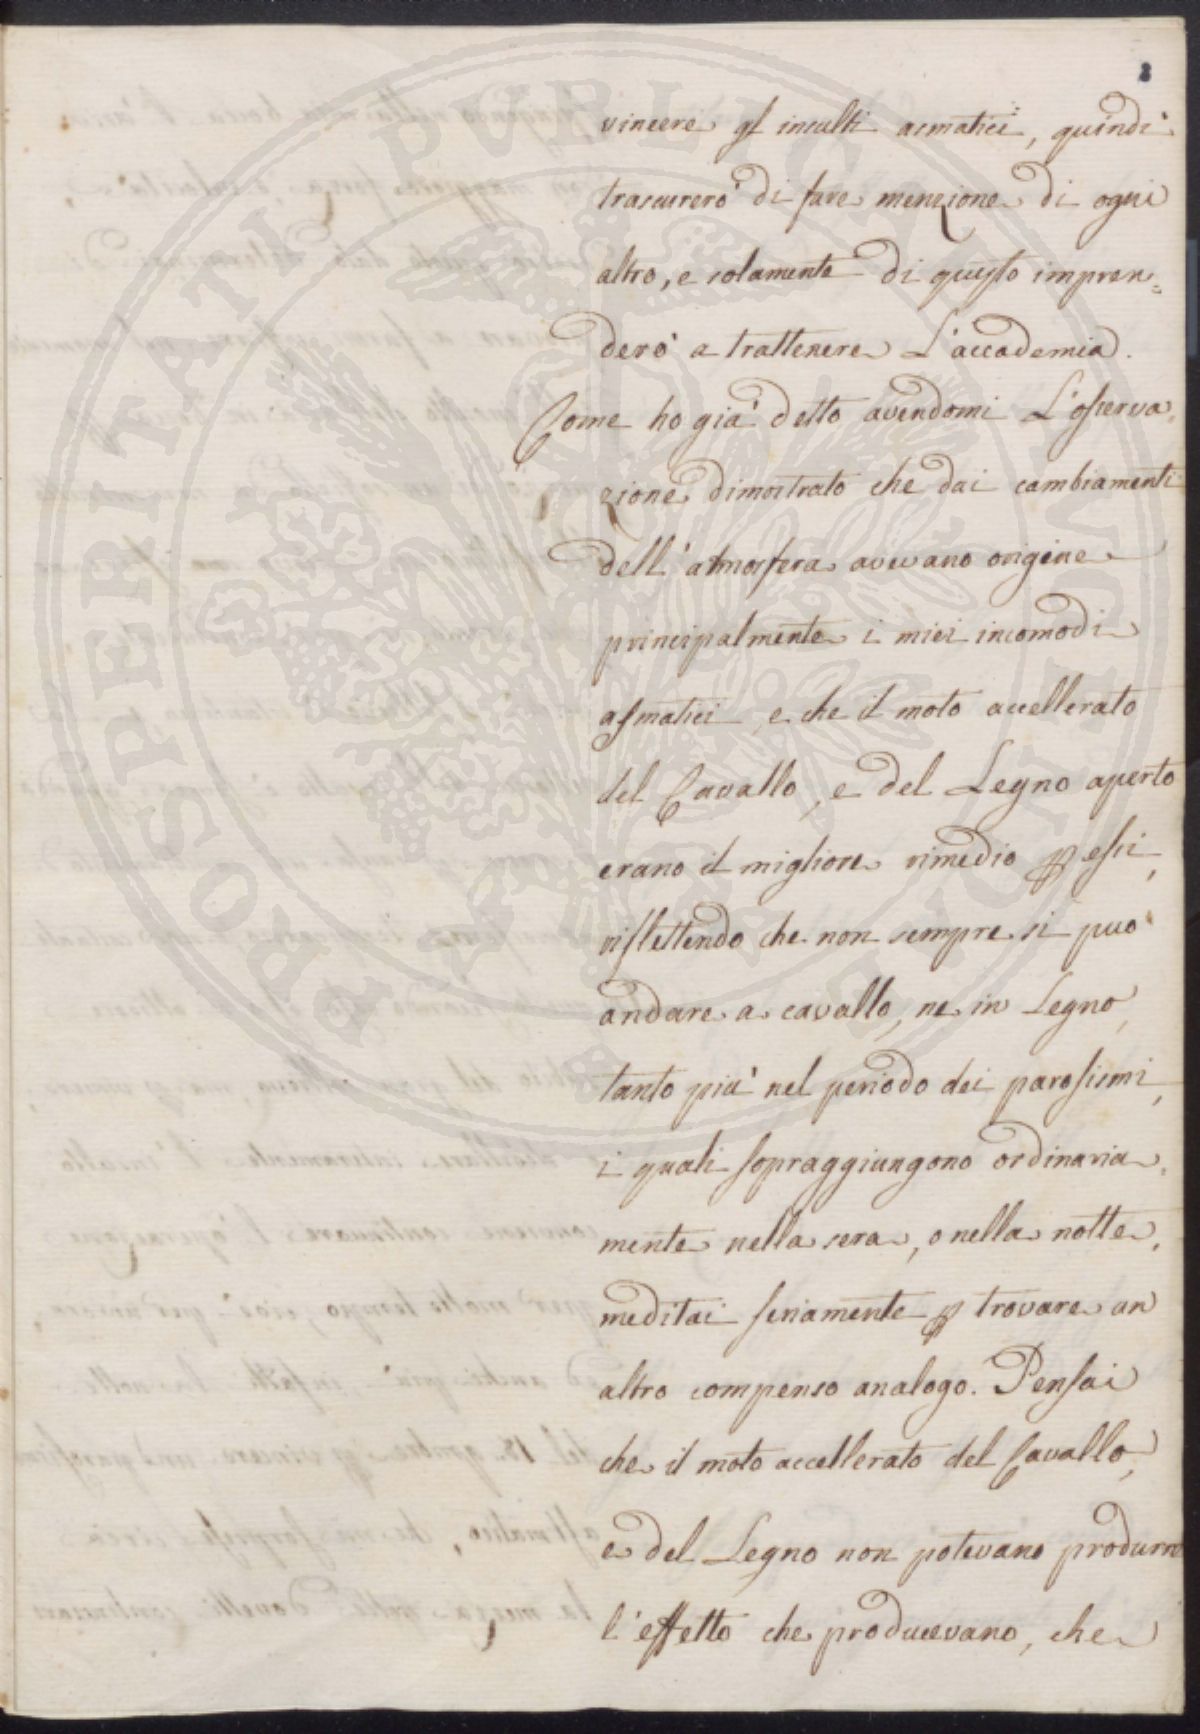 8
vincere gl' insulti asmatici, quindi
trascurerò di fare menzione di ogni
altro, e solamente di questo impren=
derò a trattenere L'accademia.
Come ho già detto avendomi L'osserva=
zione dimostrato che dai cambiamenti
dell'atmosfera avevano origine
principalmente i miei incomodi
asmatici, e che il moto accellerato
del Cavallo, e del Legno aperto
erano il migliore rimedio p essi,
riflettendo che non sempre si può
andare a cavallo, ne in Legno,
tanto più nel periodo dei parosismi,
i quali sopraggiungono ordinaria=
mente nella sera, o nella notte,
meditai seriamente p trovare un
altro compenso analogo. Pensai
che il moto accellerato del Cavallo,
e del Legno non potevano produrre
l'effetto che producevano, che
PROSPERITATI PUBLICAE AUGENDAE